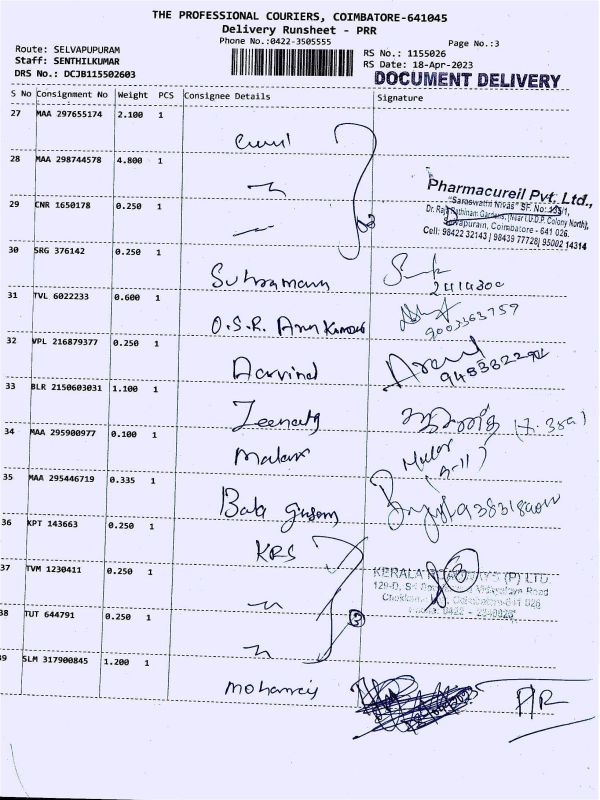 THE PROFESSIONAL COURIERS, COIMBATORE-641045
Delivery Runsheet - PRR
Phone No.:0422-3505555
Page No.:3
Route: SELVAPUPURAM
RS No.: 1155026
Staff: SENTHILKUMAR
RS Date: 18-Apr-2023
DRS No.: DCJB115502603
DOCUMENT DELIVERY
S No Consignment No Weight PCS Consignee Details Signature
27 MAA 297655174 2.100 1
28 MAA 298744578 4.800 1
Pharmacureil Pvt. Ltd.,
"Saraswathi Nivas" SF. No: 135/1,
29 CNR 1650178 0.250 1
Dr. Raja Rathinam Gardens, (Near I.U.D.P. Colony North),
Selvapuram, Coimbatore - 641 026.
Cell: 98422 32143 | 98439 77728| 95002 14314
30 SRG 376142 0.250 1
31 TVL 6022233 0.600 1
O.S.R. Arun Kumar
9003363759
32 VPL 216879377 0.250 1
Aarvind
33 BLR 2150603031 1.100 1
Zeenath
34 MAA 295900977 0.100 1
Malar
Malar
35 MAA 295446719 0.335 1
Bala
36 KPT 143663 0.250 1
KRS
37 TVM 1230411 0.250 1
3
KERALA ROADWAYS (P) LTD.
38 TUT 644791 0.250 1
3
39 SLM 317900845 1.200 1
P/R